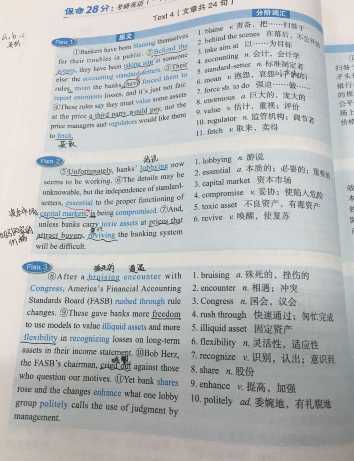 保命28分：考研英语
Text 4（文章共24句）
分阶词汇
Para 1
原文
①Bankers have been blaming themselves
for their troubles in public. ②Behind the
scenes, they have been taking aim at someone
else: the accounting standard-setters. ③Their
rules, moan the banks, have forced them to
report enormous losses, and it's just not fair.
④These rules say they must value some assets
at the price a third party would pay, not the
price managers and regulators would like them
to fetch.
1. blame v. 责备，把……归咎于
2. behind the scenes 在幕后，不公开
3. take aim at 以……为目标
4. accounting n. 会计，会计学
5. standard-setter n. 标准制定者
6. moan v. 抱怨，哀怨
7. force sb. to do 强迫……做……
8. enormous a. 巨大的，庞大的
9. value v. 估计，重视；评价
10. regulator n. 监管机构；调节者
11. fetch v. 取来，卖得
Para 2
游说
⑤Unfortunately, banks' lobbying now
seems to be working. ⑥The details may be
unknowable, but the independence of standard-
setters, essential to the proper functioning of
capital markets, is being compromised. ⑦And,
unless banks carry toxic assets at prices that
attract buyers, reviving the banking system
will be difficult.
1. lobbying n. 游说
2. essential a. 本质的；必要的；重要的
3. capital market 资本市场
4. compromise v. 妥协；使陷入危险
5. toxic asset 不良资产，有毒资产
6. revive v. 唤醒，使复苏
Para 3
⑧After a bruising encounter with
Congress, America's Financial Accounting
Standards Board (FASB) rushed through rule
changes. ⑨These gave banks more freedom
to use models to value illiquid assets and more
flexibility in recognizing losses on long-term
assets in their income statement. ⑩Bob Herz,
the FASB's chairman, cried out against those
who question our motives. ⑪Yet bank shares
rose and the changes enhance what one lobby
group politely calls the use of judgment by
management.
1. bruising a. 殊死的，挫伤的
2. encounter n. 相遇；冲突
3. Congress n. 国会，议会
4. rush through 快速通过；匆忙完成
5. illiquid asset 固定资产
6. flexibility n. 灵活性，适应性
7. recognize v. 识别，认出；意识到
8. share n. 股份
9. enhance v. 提高，加强
10. politely ad. 委婉地，有礼貌地